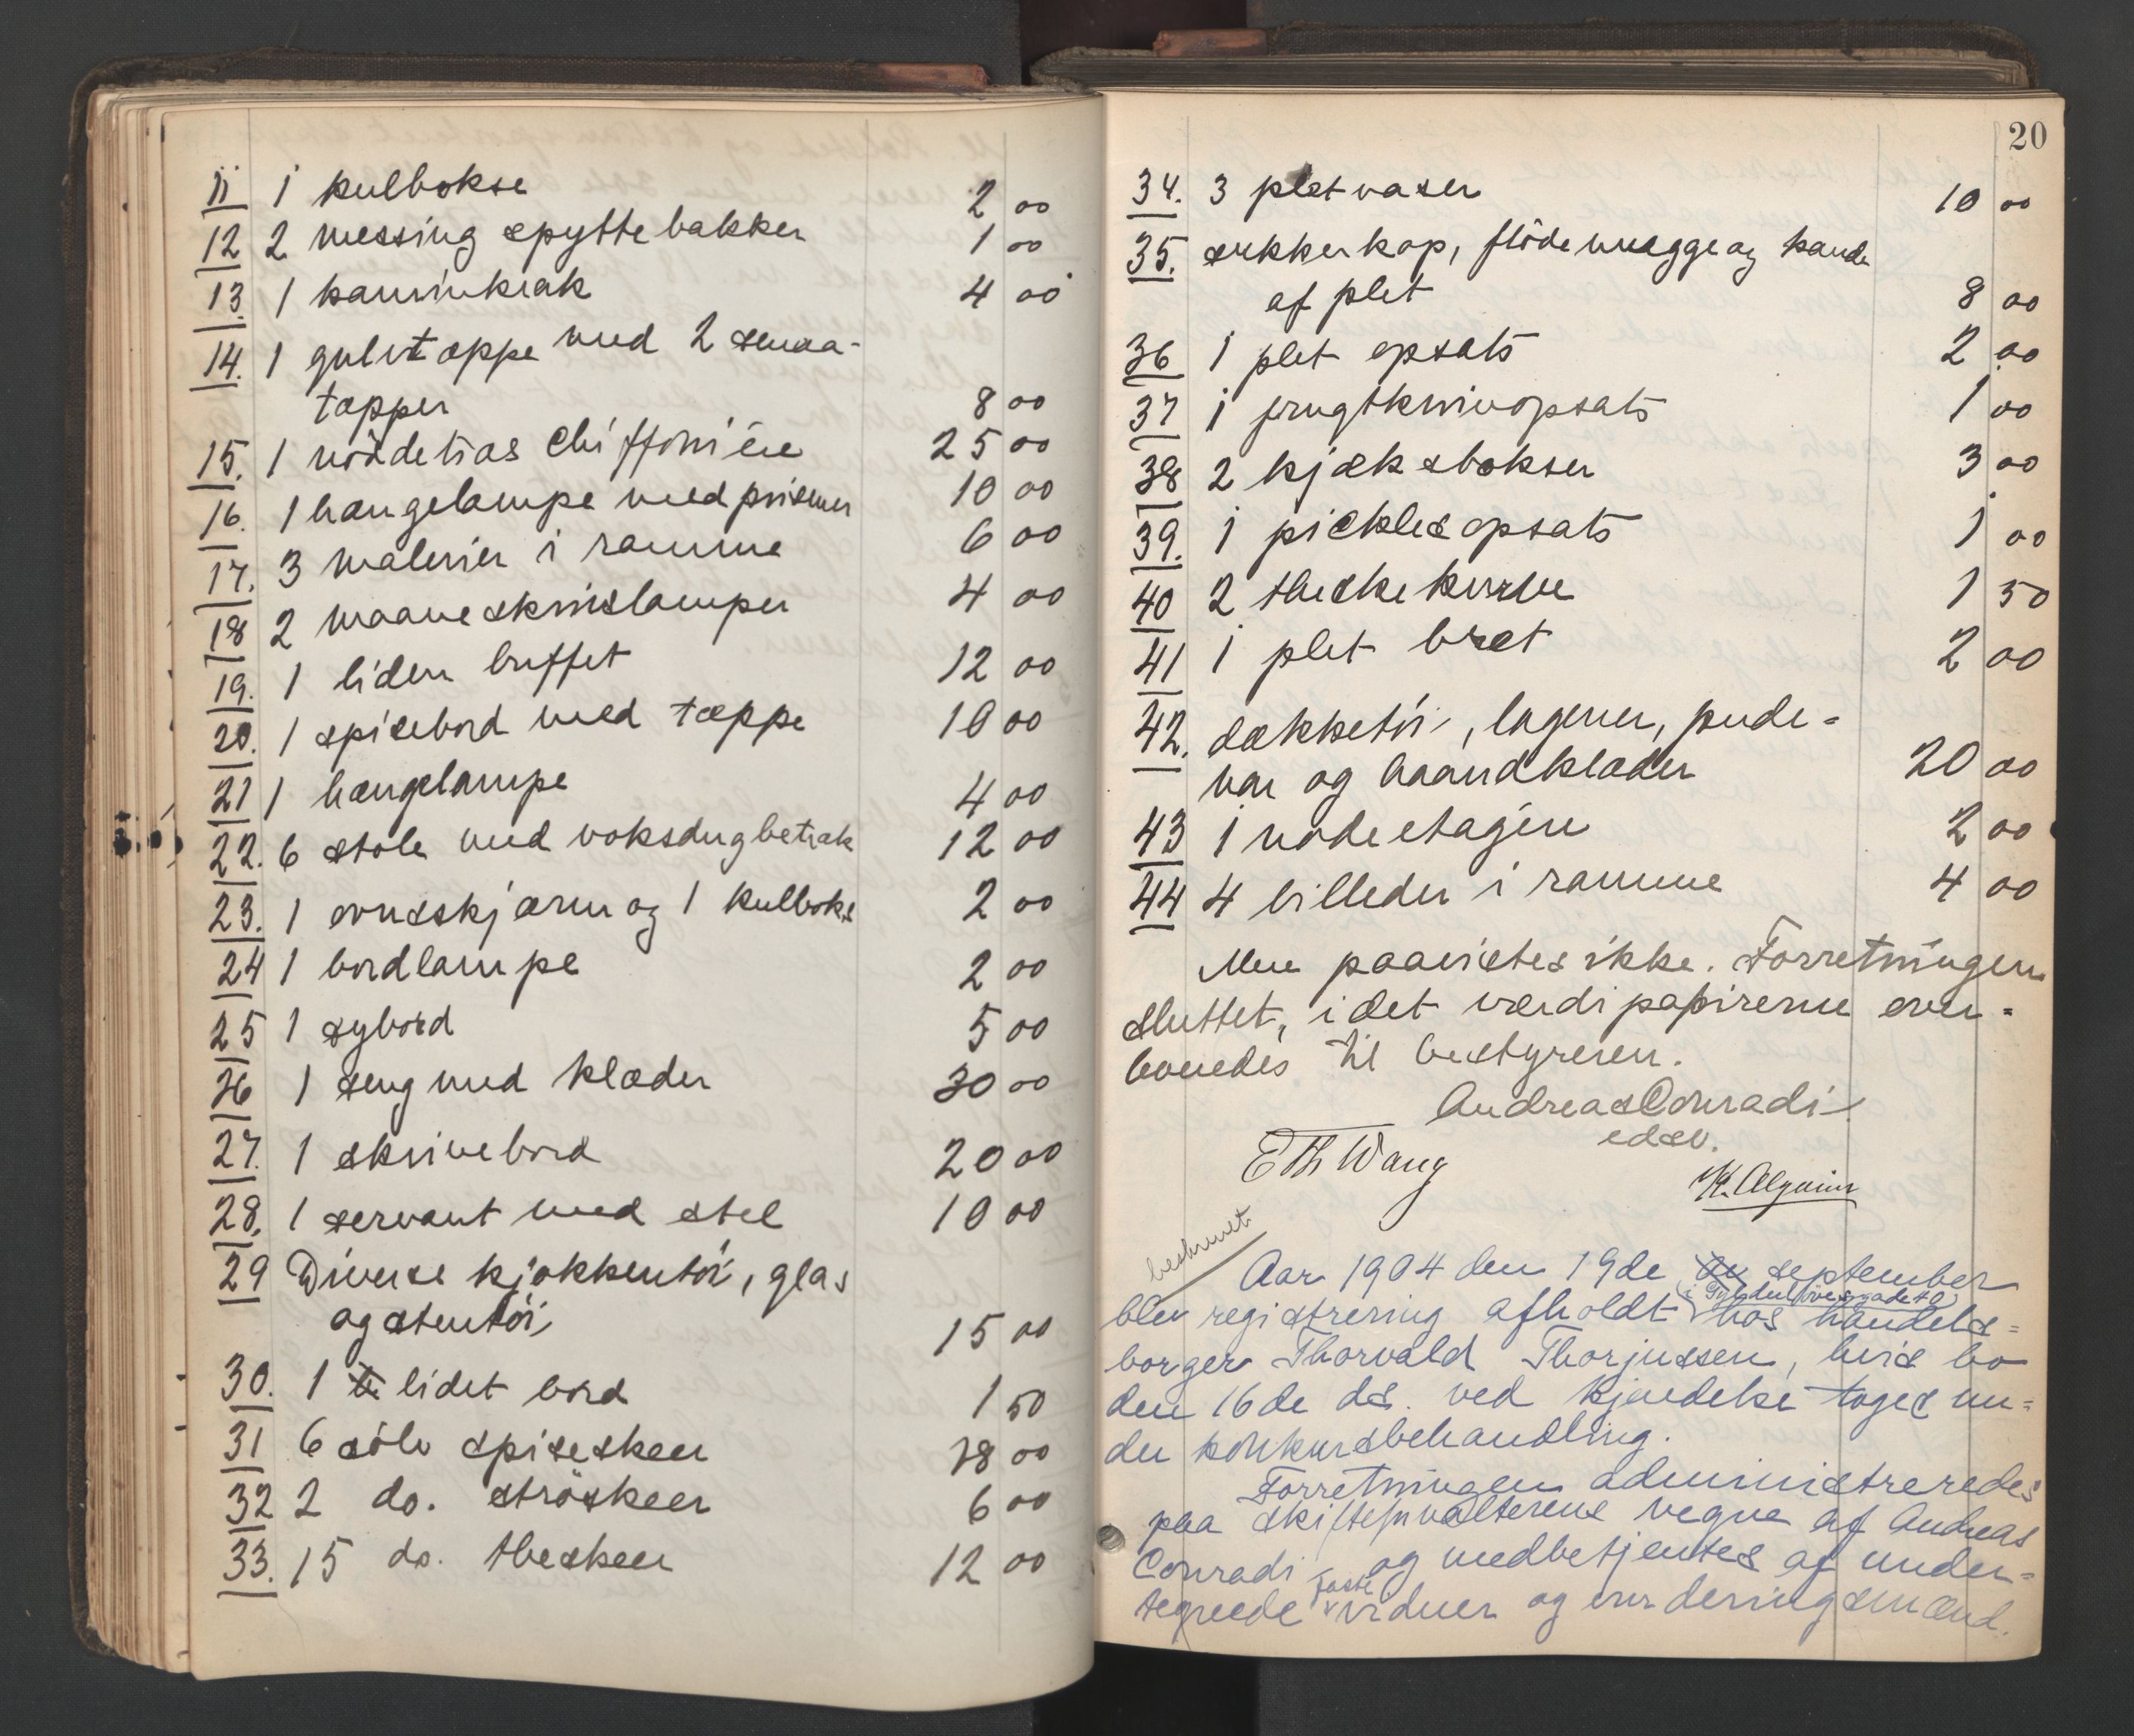 11 1 kulbokse 2 00
12 2 messing spyttebakker 1 00
13. 1 kaminkrak 4 00
14. 1 gulvtæppe med 2 smaa-
tæpper 8 00
15. 1 nöddetræs Chiffoniére 25 00
16. 1 hængelampe med prismer 10 00
17. 3 malerier i ramme 6 00
18 2 maaneskinslamper 4 00
19. 1 liden buffet 12 00
20. 1 spisebord med tæppe 10 00
21 1 hængelampe 4 00
22. 6 stole med voksdugbetræk 12 00
23. 1 ovnsskjærm og 1 kulboks 2 00
24 1 bordlampe 2 00
25 1 sybord 5 00
26 1 seng med klæder 30 00
27. 1 skrivebord 20 00
28. 1 servant med stel 10 00
29 Diverse kjøkkentöi, glas
og stentöi 15 00
30. 1 lidet bord 1 50
31 6 sölv spiseskeer 18 00
32 2 do. ströskeer 6 00
33. 15 do. theskeer 12 00
20
34. 3 pletvaser 10 00
35. sukkerkop, flödemugge og kande
af plet 8 00
36 1 plet opsats 2 00
37 1 frugtknivopsats 1 00
38 2 kjæksbokser 3 00
39. 1 picklesopsats 1 00
40 2 theskekurve 1 50
41 1 plet bræt 2 00
42. dækketöi, lagener, pude-
var og haandklæder 20 00
43 1 node etagére 2 00
44 4 billeder i ramme 4 00
Mere paavistes ikke. Forretningen
sluttet, idet værdipapirerne over-
leveredes til bestyreren.
Andreas Conradi
edsv.
E Th Wang
K. Alguim
beskrevet
Aar 1904 den 19de september
blev registrering afholdt hos handels-
borger Thorvald Thorjussen, hvis bo
den 16de ds. ved kjendelse toges un-
der konkursbehandling.
Forretningen administreredes
paa skifteforvalterens vegne af Andreas
Conradi og medbetjentes af under-
tegnede faste vidner og vurderingsmænd.